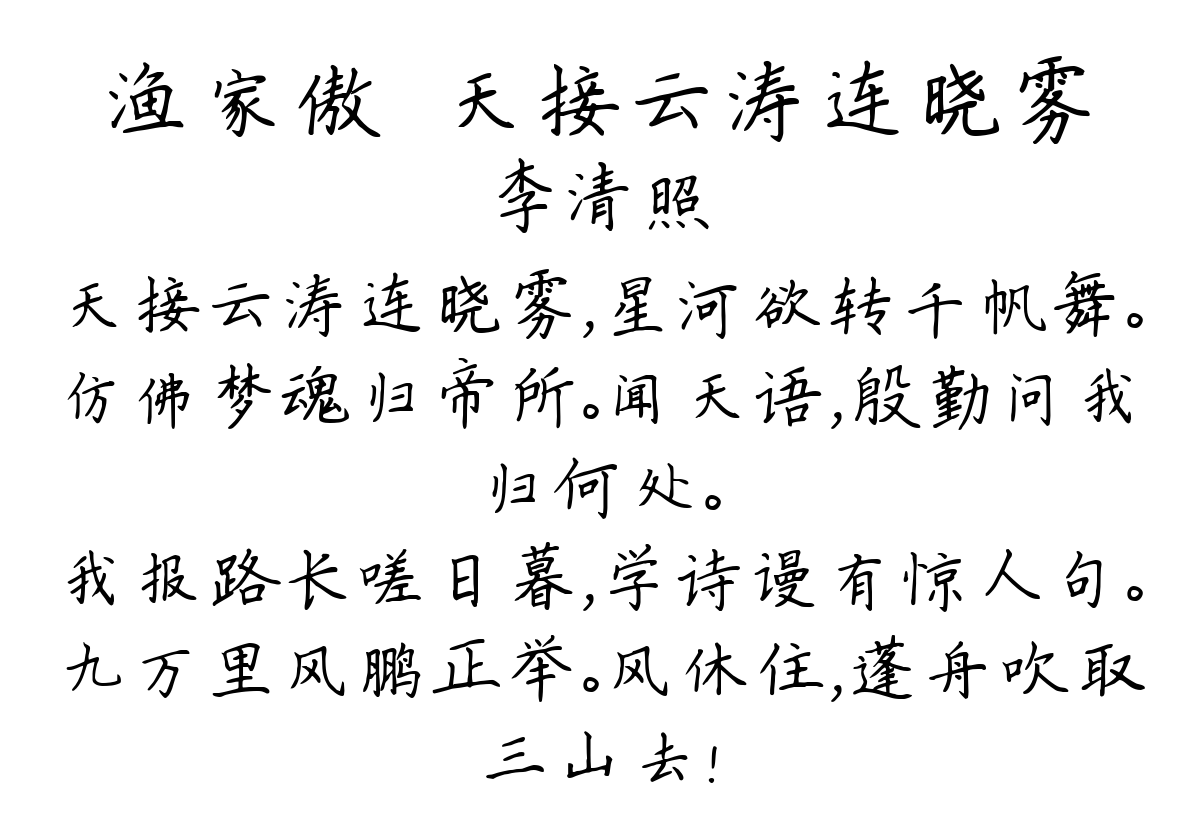 渔家傲 天接云涛连晓雾
李清照
天接云涛连晓雾,星河欲转千帆舞。
仿佛梦魂归帝所。闻天语,殷勤问我
归何处。
我报路长嗟日暮,学诗谩有惊人句。
九万里风鹏正举。风休住,蓬舟吹取
三山去!